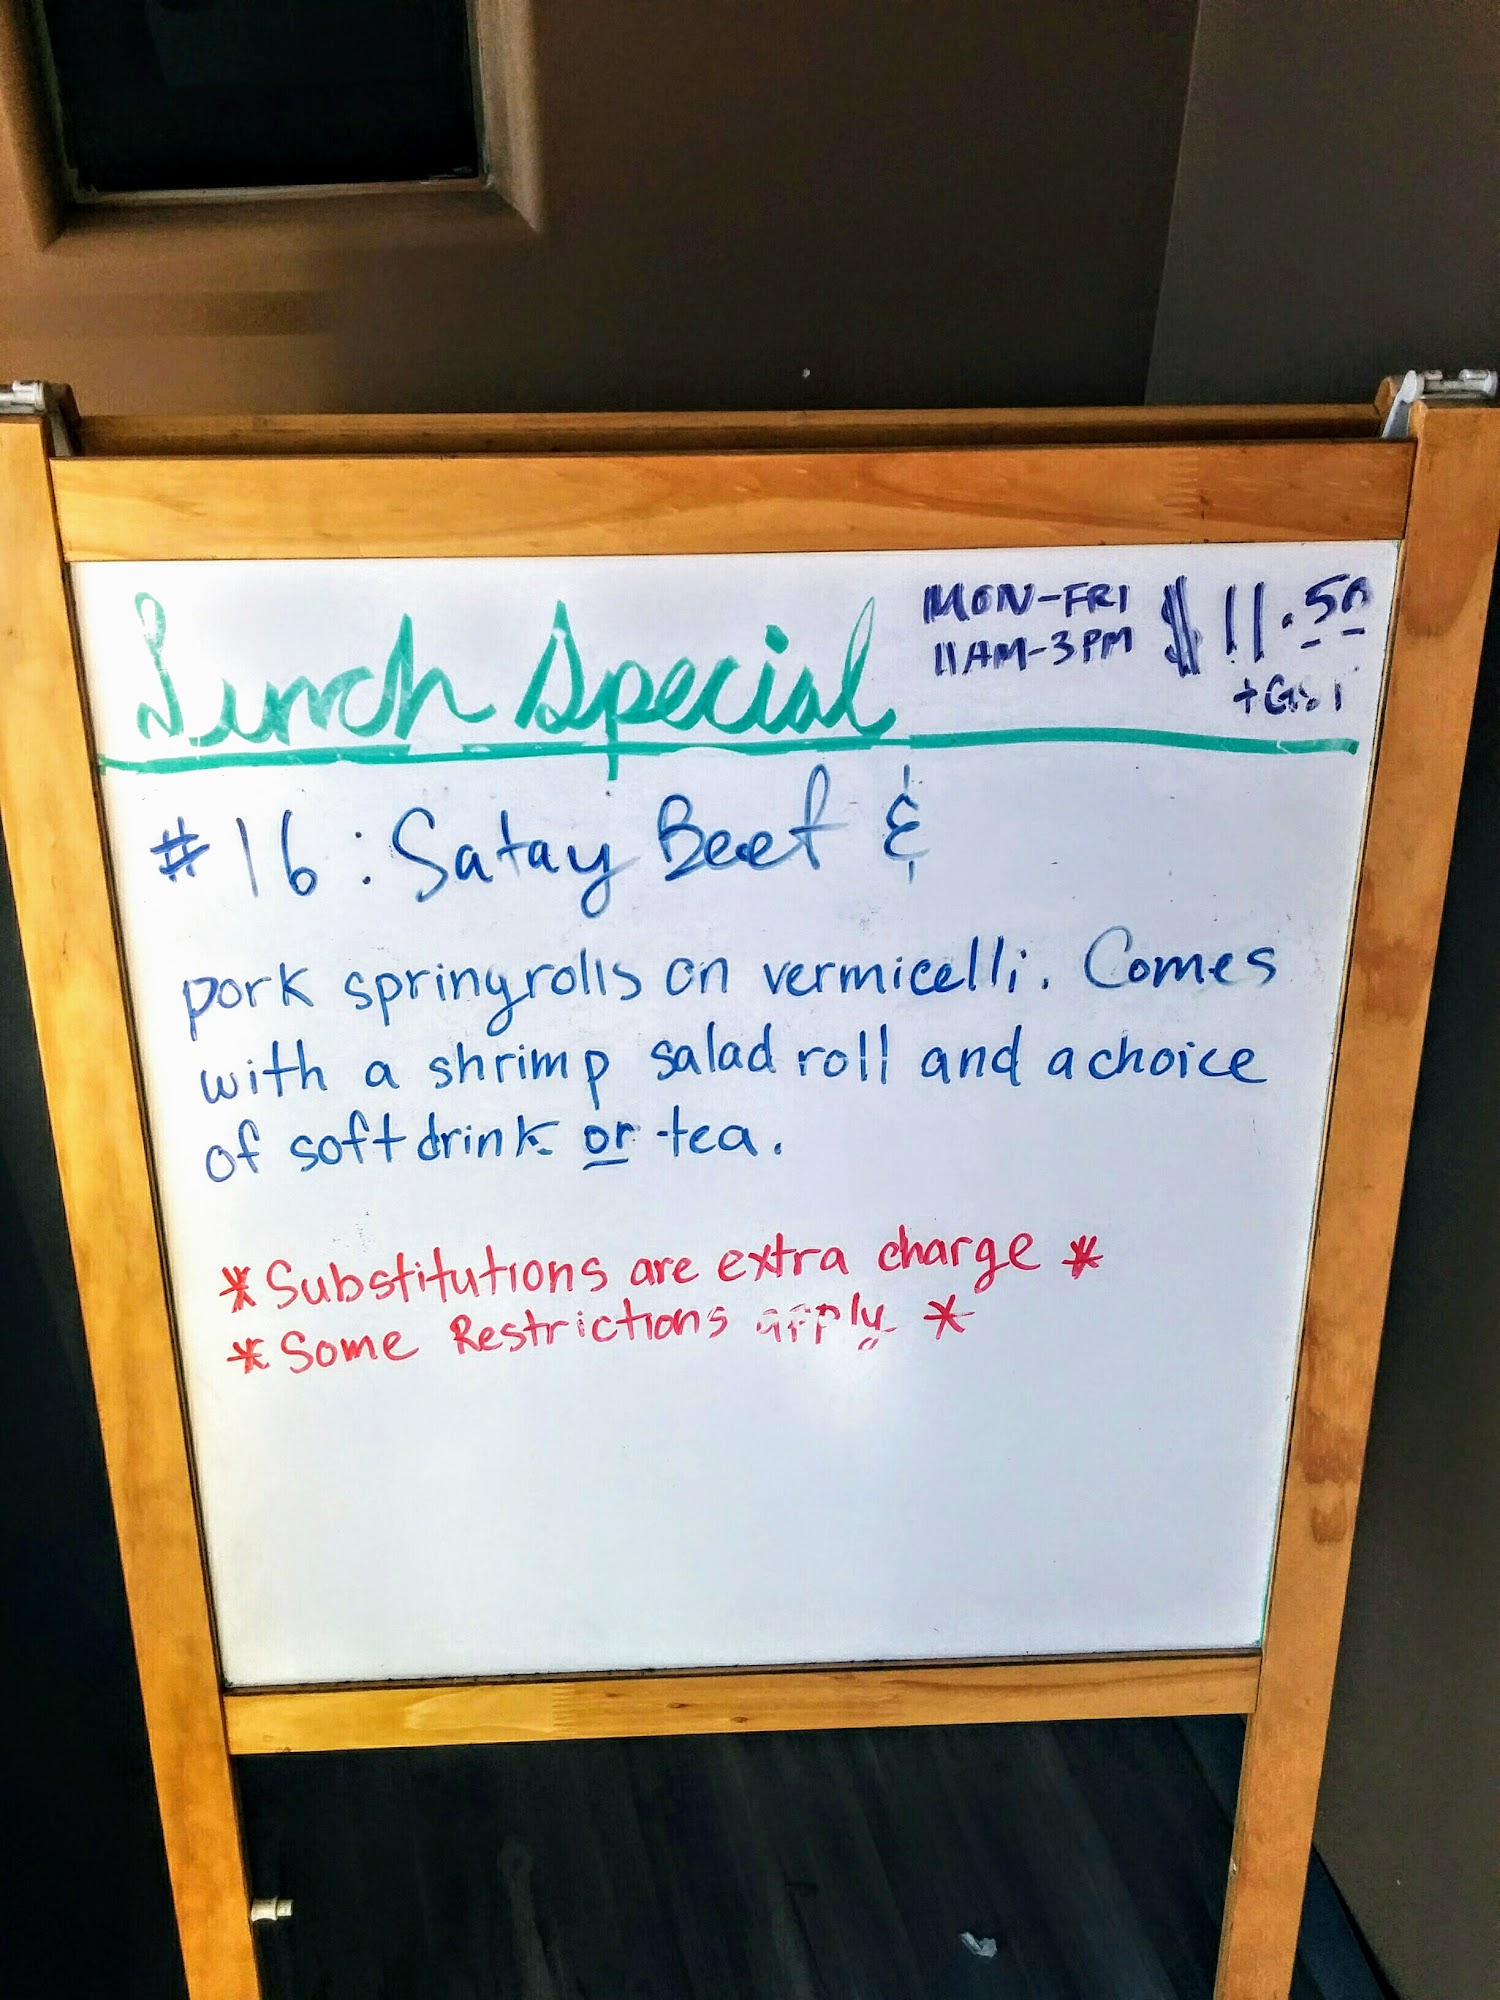 Lunch Special
MON-FRI
11AM-3PM
$11.50
+GST
#16: Satay Beef &
pork springrolls on vermicelli. Comes
with a shrimp salad roll and a choice
of soft drink or tea.
*Substitutions are extra charge*
*Some Restrictions apply*